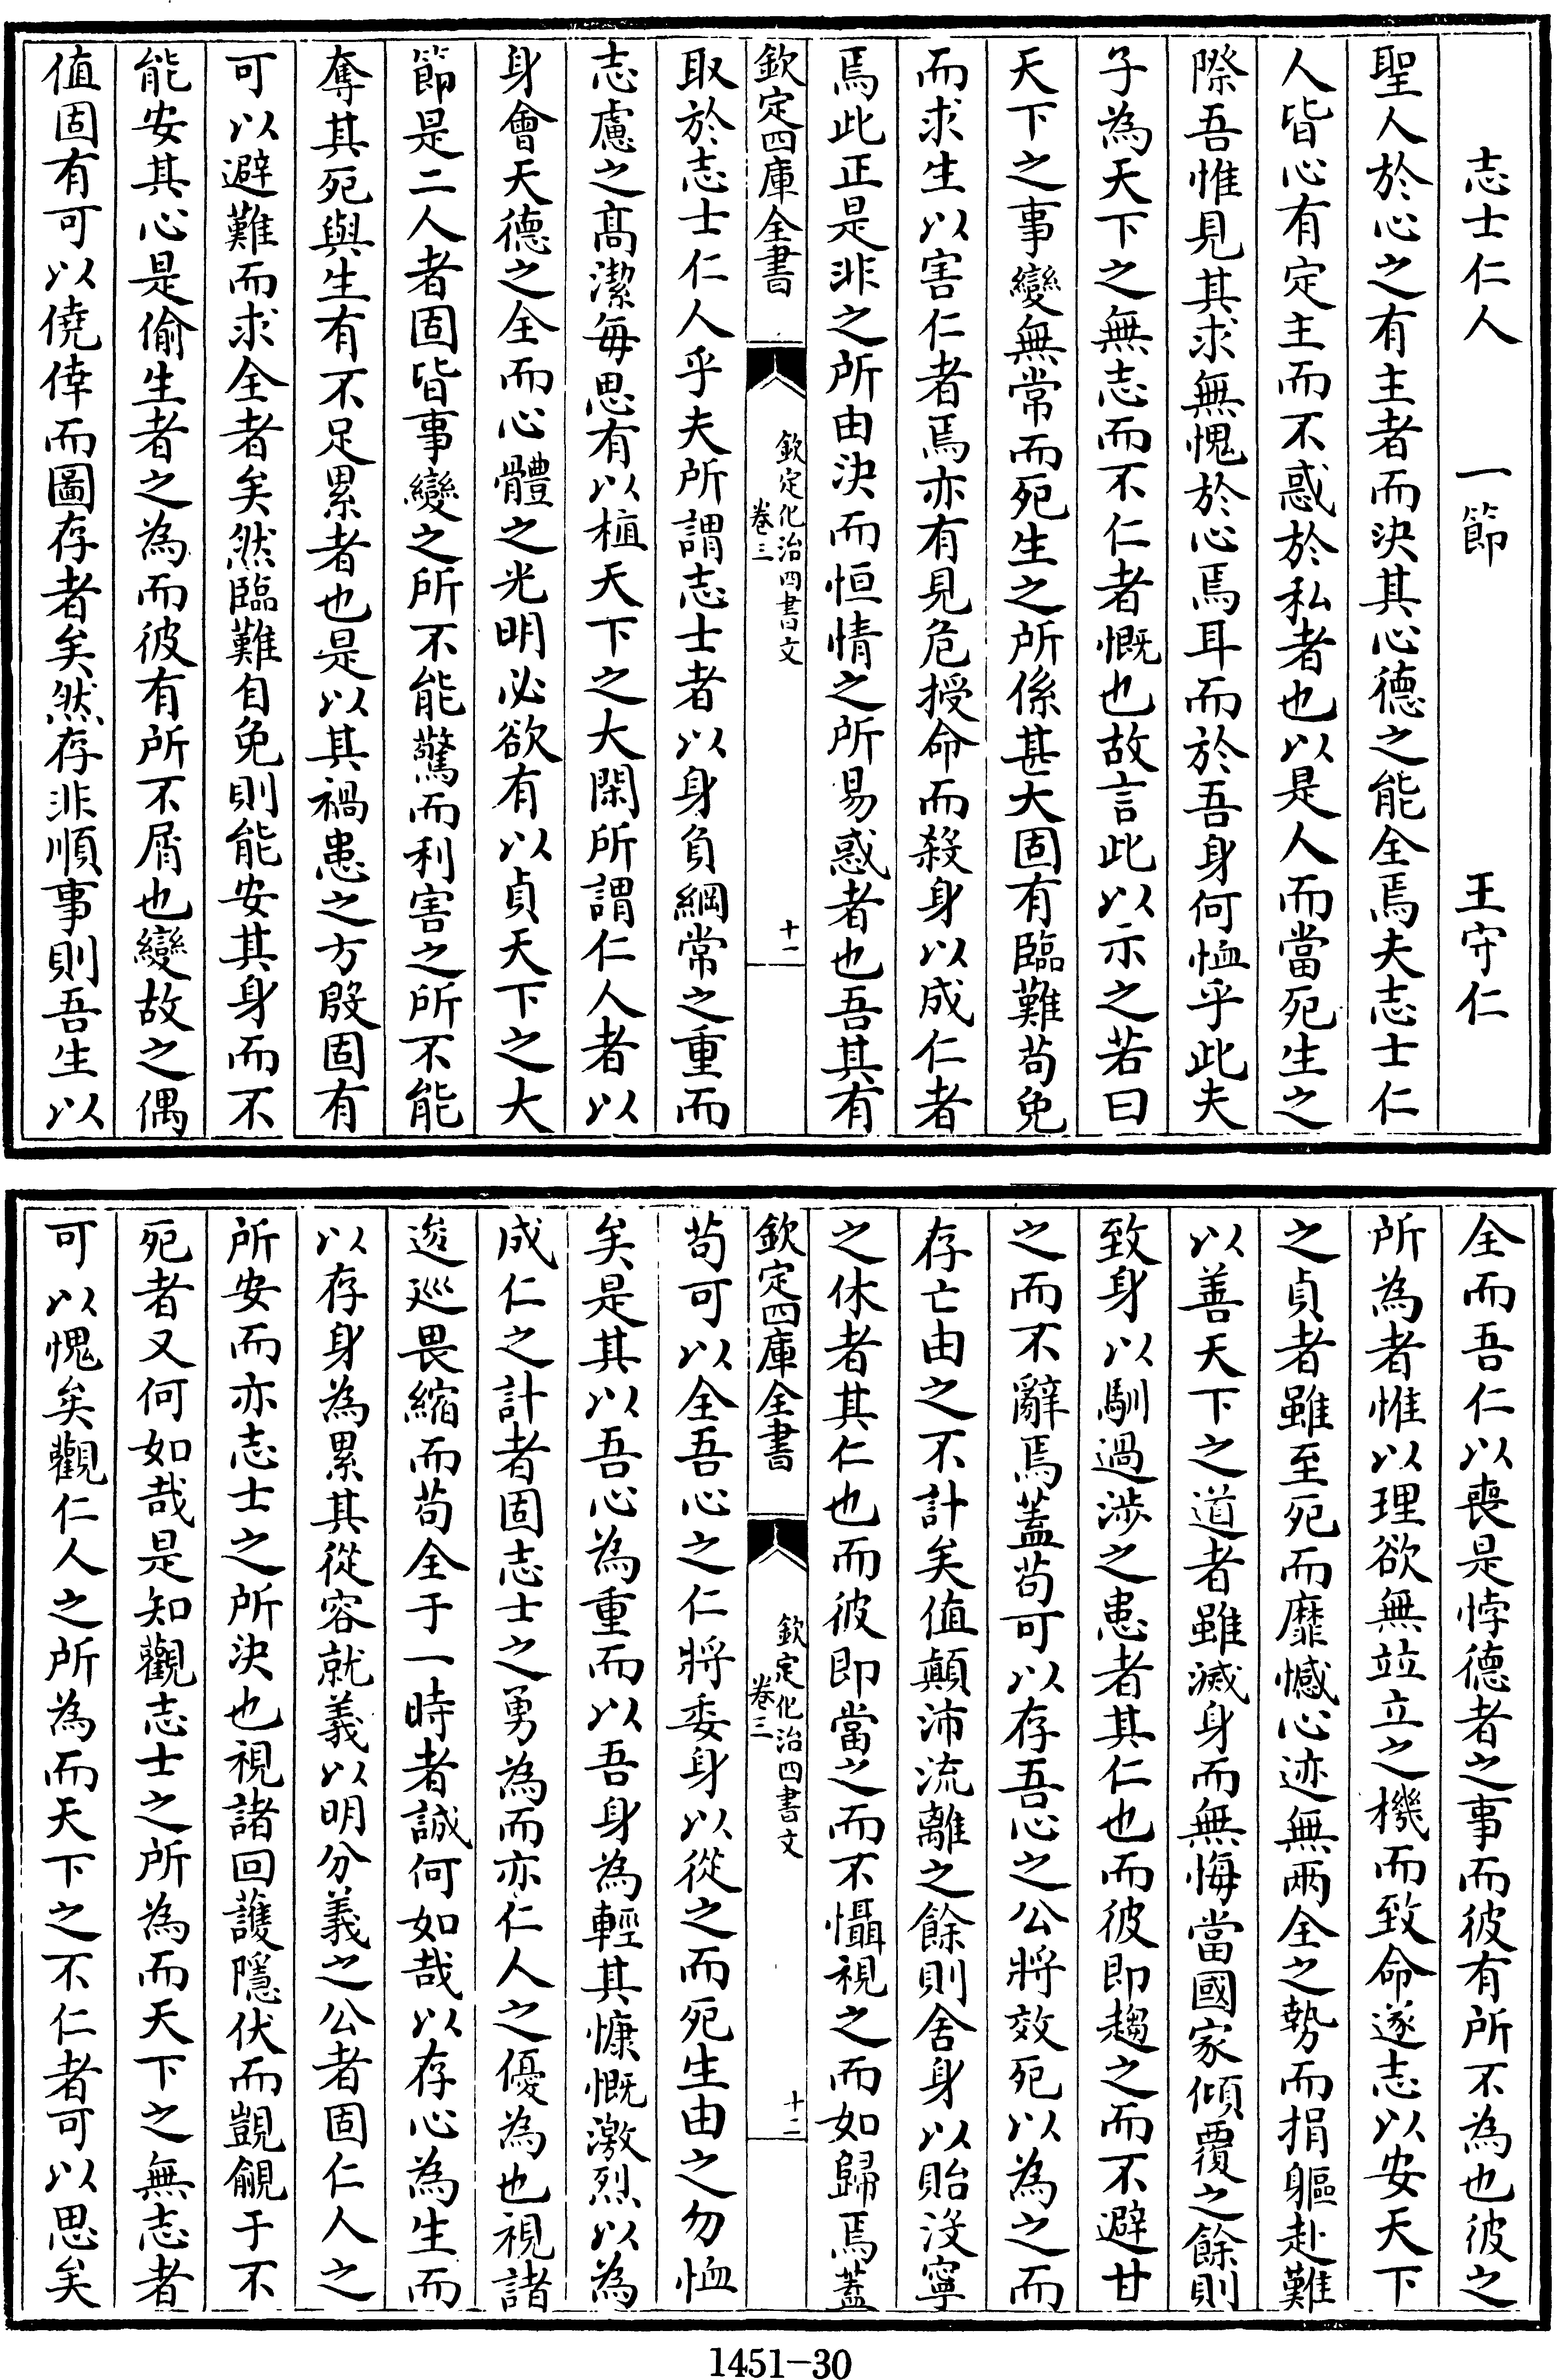 志士仁人　一節　王守仁
聖人於心之有主者而決其心德之能全焉夫志士仁
人皆心有定主而不惑於私者也以是人而當死生之
際吾惟見其求無愧於心焉耳而於吾身何恤乎此夫
子為天下之無志而不仁者慨也故言此以示之若曰
天下之事變無常而死生之所係甚大固有臨難苟免
而求生以害仁者焉亦有見危授命而殺身以成仁者
焉此正是非之所由決而恒情之所易惑者也吾其有
欽定四庫全書　欽定化治四書文　卷三　十一
取於志士仁人乎夫所謂志士者以身負綱常之重而
志慮之髙潔每思有以植天下之大閑所謂仁人者以
身會天德之全而心體之光明必欲有以貞天下之大
節是二人者固皆事變之所不能驚而利害之所不能
奪其死與生有不足累者也是以其禍患之方殷固有
可以避難而求全者矣然臨難自免則能安其身而不
能安其心是偷生者之為而彼有所不屑也變故之偶
值固有可以僥倖而圖存者矣然存非順事則吾生以
全而吾仁以喪是悖德者之事而彼有所不為也彼之
所為者惟以理欲無竝立之機而致命遂志以安天下
之貞者雖至死而靡憾心迹無兩全之勢而捐軀赴難
以善天下之道者雖滅身而無悔當國家傾覆之餘則
致身以馴過涉之患者其仁也而彼即趨之而不避甘
之而不辭焉蓋苟可以存吾心之公將效死以為之而
存亡由之不計矣值顛沛流離之餘則舍身以貽沒寧
之休者其仁也而彼即當之而不懾視之而如歸焉蓋
欽定四庫全書　欽定化治四書文　卷三　十二
苟可以全吾心之仁將委身以從之而死生由之勿恤
矣是其以吾心為重而以吾身為輕其慷慨激烈以為
成仁之計者固志士之勇為而亦仁人之優為也視諸
逡巡畏縮而苟全于一時者誠何如哉以存心為生而
以存身為累其從容就義以明分義之公者固仁人之
所安而亦志士之所決也視諸回護隱伏而覬覦于不
死者又何如哉是知觀志士之所為而天下之無志者
可以愧矣觀仁人之所為而天下之不仁者可以思矣
1451-30